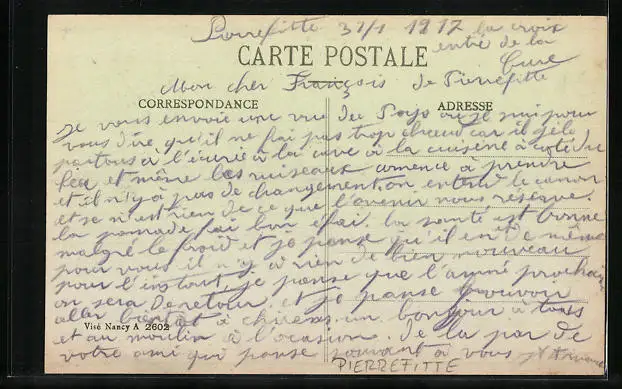 Pierrefitte 31/1 1917 la croix
entré de la
Cure
CARTE POSTALE
Mon cher François de Pierrefitte
CORRESPONDANCE
ADRESSE
Je vous envoie une vue du Pays où je suis pour
vous dire qu'il ne fai pas trop chaud car il gele
partous à l'écurie à la cave à la cuisine à coté du
feu et même les ruiseaux comence à prendre
et il n'y à pas de changement on entend le canon
et je n'est rien de ce que l'avenir nous réserve.
la pomade fai bon la santé est bonne
malgré le froid et je panse qu'il en de même
pour vous il n'y a rien de bien nouveau
pour l'instant je panse que l'anné prochain
on sera de retour et je panse pouvoir
aller bientot à un bonjour à tous
et au moulin à l'ocasion. de la par de
votre ami qui panse souvant à vous
Visé Nancy A 2602
PIERREFITTE